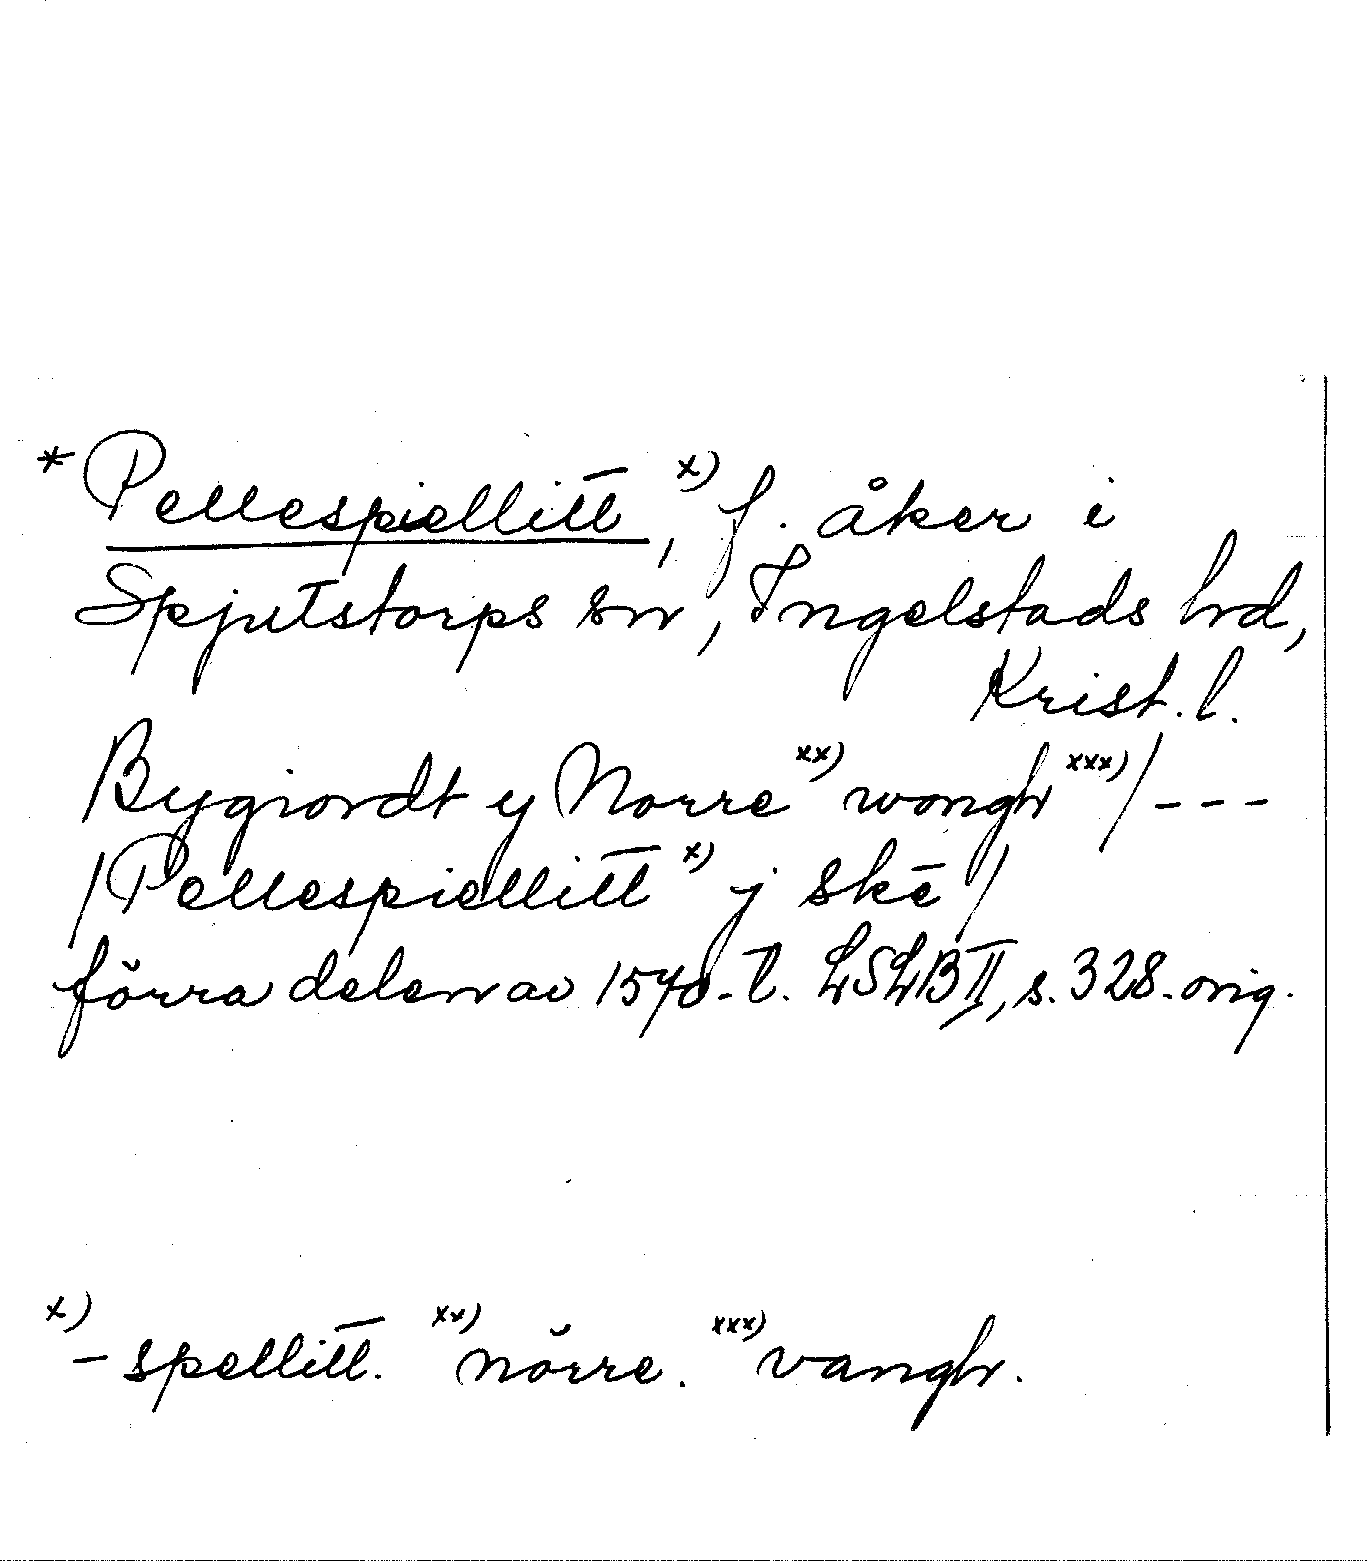 * Pellespiellitt, x) f. åker i
Spjutstorps sn, Ingelstads hd,
Krist. l.
Bygiordt y Norre xx) wongh xxx) / - - -
/ Pellespiellitt x) j skē /
förra delen av 1570-t. LSLB II, s. 328. orig.
x) - spellitt. xx) nörre. xxx) vangh.